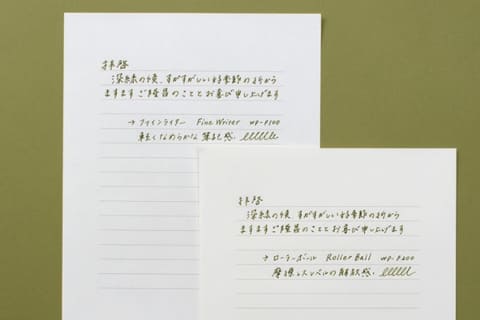 拝啓
深緑の候、すがすがしい好季節の折から
ますますご隆昌のこととお喜び申し上げます
→ ファインライター Fine Writer WP-F500
軽くなめらかな筆記感。
拝啓
深緑の候、すがすがしい好季節の折から
ますますご隆昌のこととお喜び申し上げます
→ ローラーボール Roller Ball
摩擦レスレベルの解放感。